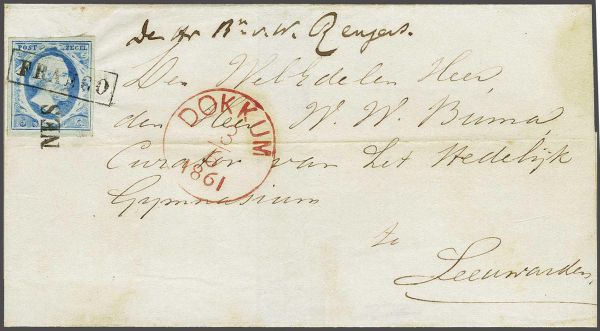 POST ZEGEL
FRANCO
NES
DOKKUM
1861
Den Weledelen Heer,
den Heer W. W. Buma,
Curator van het Stedelijk
Gymnasium
te
Leeuwarden,